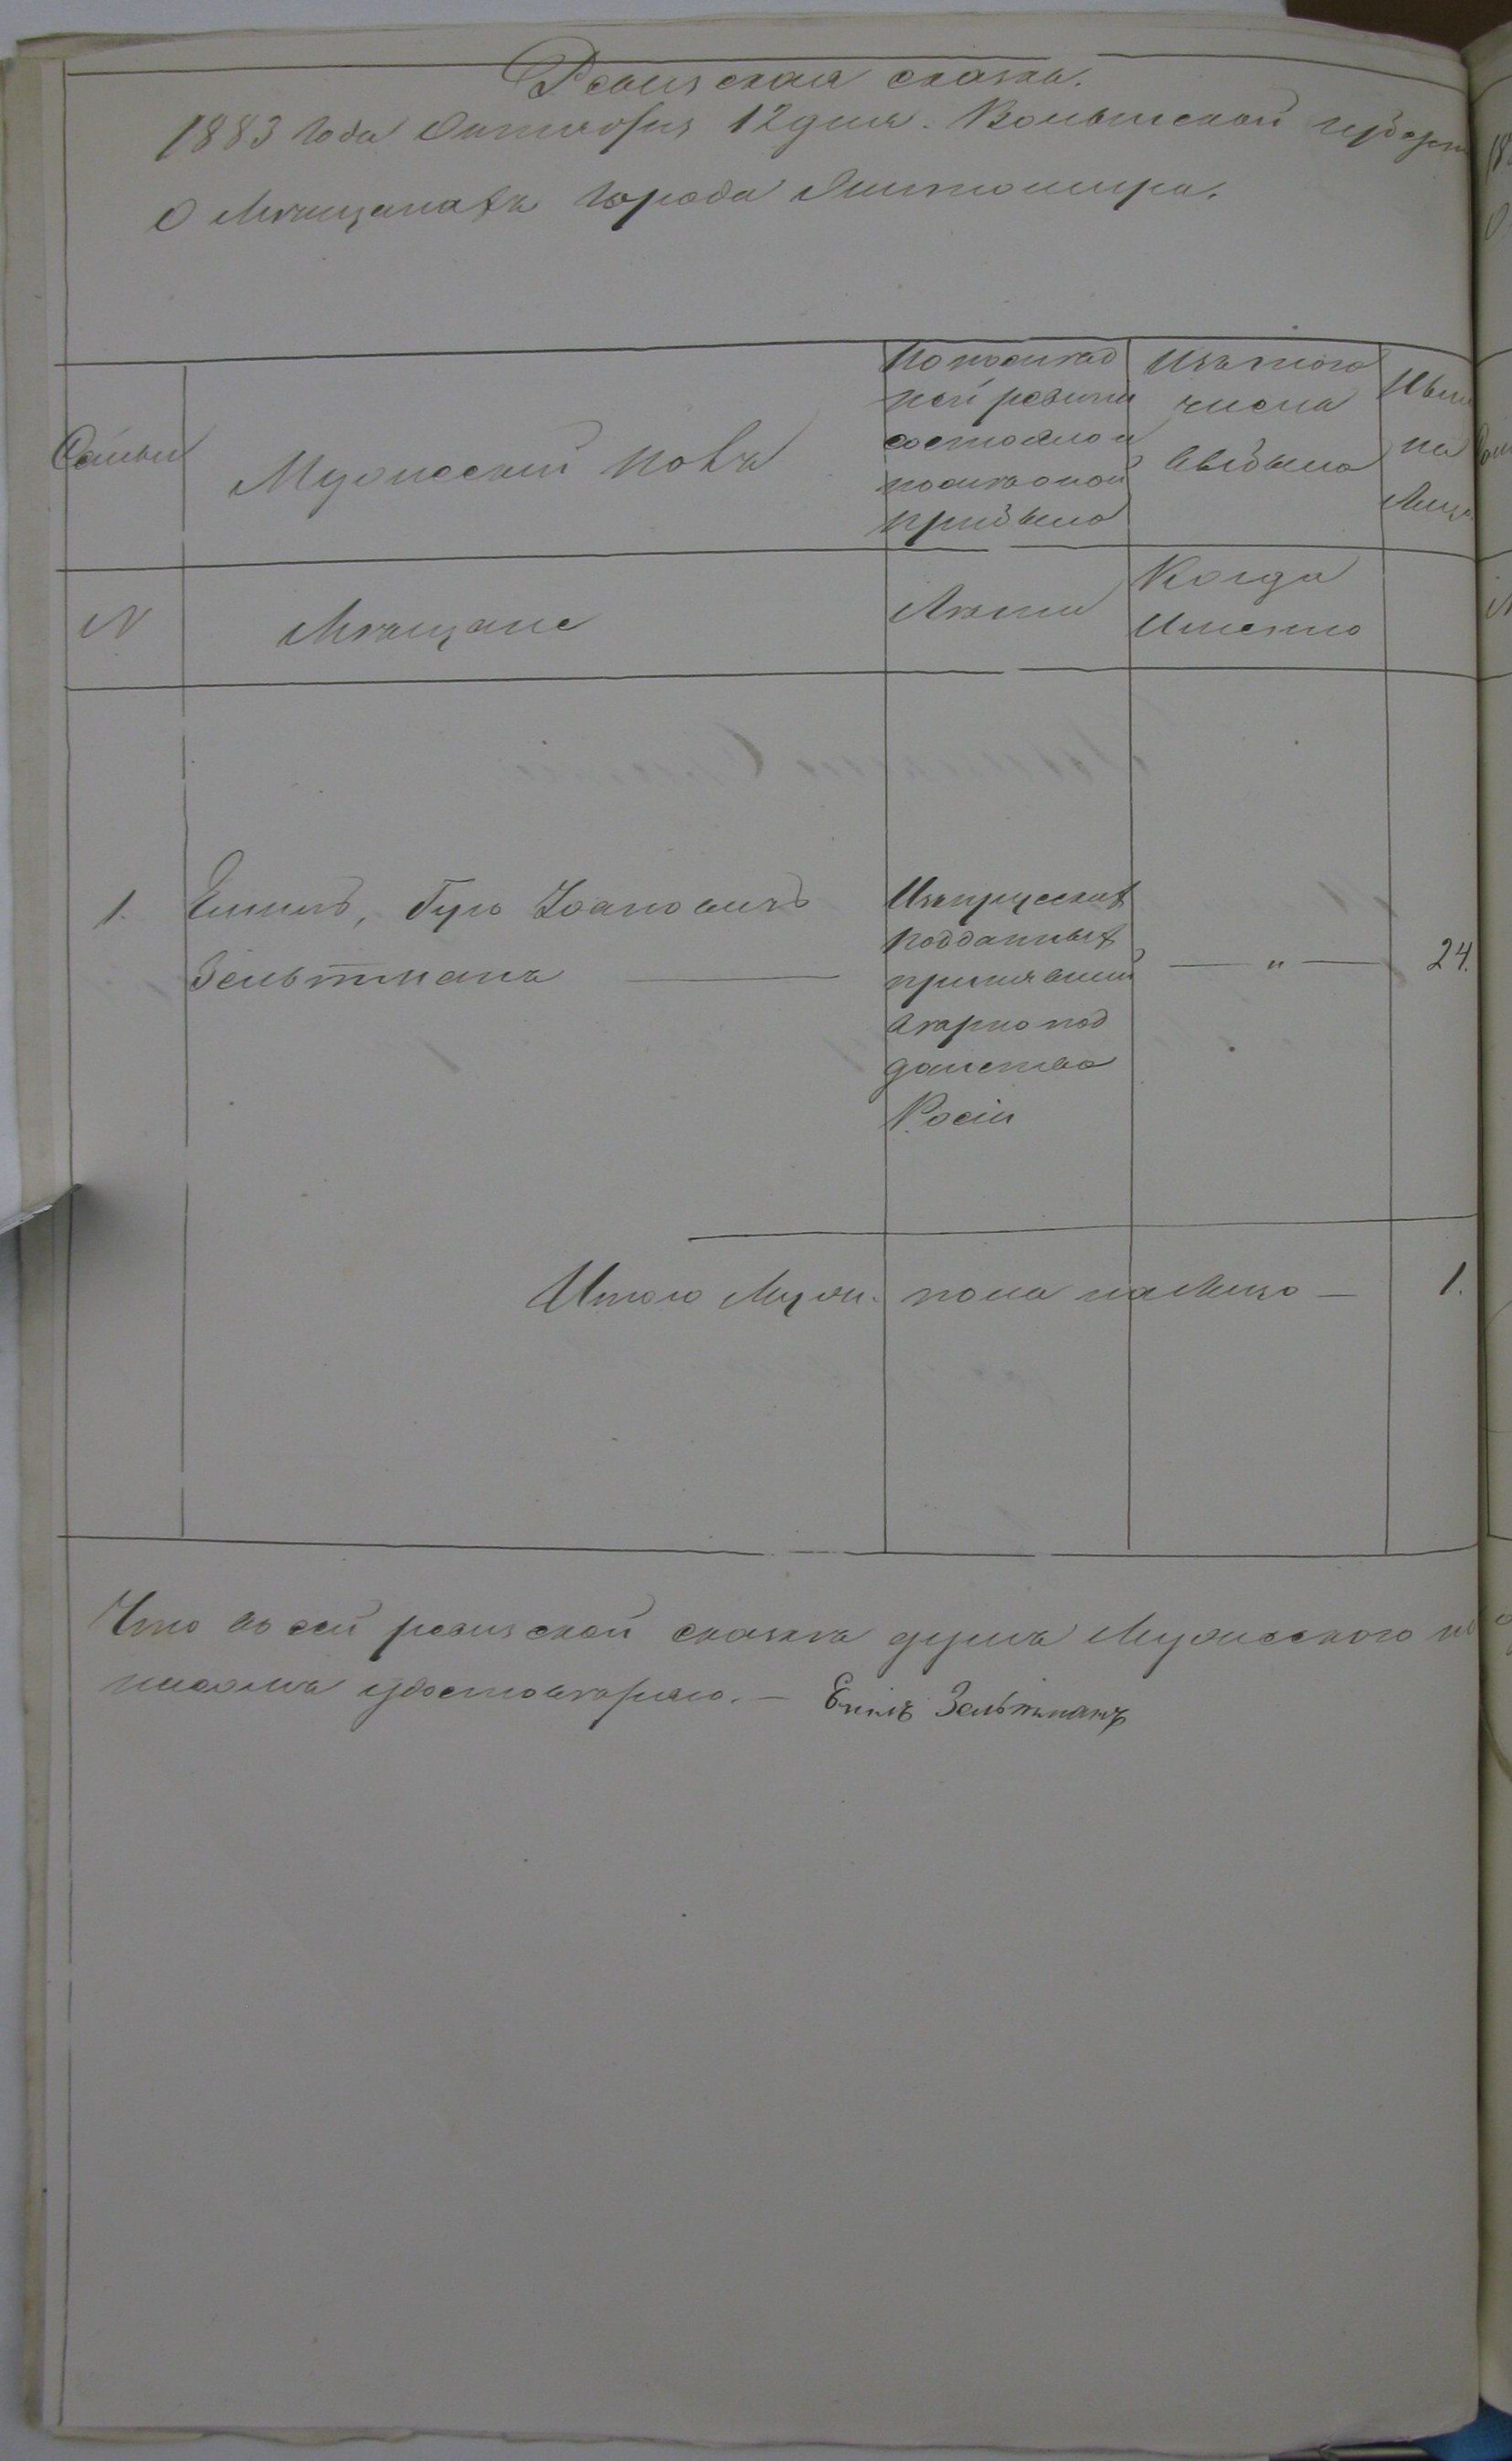 Ревизская сказка.
1883 Года Октября 12 дня. Волынской губерн
О Мѣщанахъ города Житомира.
Семьи
Мужеский полъ
По послѣд
ней ревизіи
состояло и
послѣ оной
прибыло
Изъ того
числа
выбыло
Нынѣ
на
Лицо
N
Мѣщане
Лѣта
Когда
Именно
1.
Емиль, Гуго Іоановичъ
Зельтманъ
Изъ прусскихъ
подданныхъ
принявший
вѣрно под
данство
Росіи
"
24.
Итого Муж. пола на Лицо —
1.
Что въ сей ревизской сказкѣ душъ Мужеского по
удостовѣряю. — Емилъ Зельтманъ